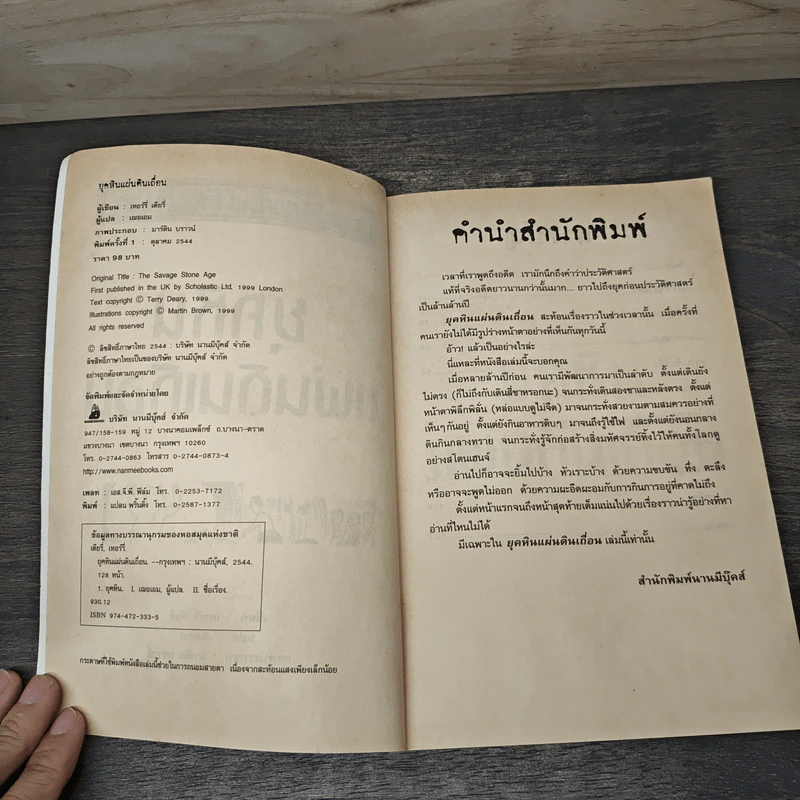 ยุคหินแผ่นดินเถื่อน
ผู้เขียน : เทอร์รี่ เดียรี่
ผู้แปล : เฌอเอม
ภาพประกอบ : มาร์ติน บราวน์
พิมพ์ครั้งที่ 1 : ตุลาคม 2544
ราคา 98 บาท
Original Title : The Savage Stone Age
First published in the UK by Scholastic Ltd, 1999 London
Text copyright © Terry Deary, 1999
Illustrations copyright © Martin Brown, 1999
All rights reserved
© ลิขสิทธิ์ภาษาไทย 2544 : บริษัท นานมีบุ๊คส์ จำกัด
ลิขสิทธิ์ภาษาไทยเป็นของบริษัท นานมีบุ๊คส์ จำกัด
อย่างถูกต้องตามกฎหมาย
จัดพิมพ์และจัดจำหน่ายโดย
บริษัท นานมีบุ๊คส์ จำกัด
947/158-159 หมู่ 12 บางนาคอมเพล็กซ์ ถ.บางนา-ตราด
แขวงบางนา เขตบางนา กรุงเทพฯ 10260
โทร. 0-2744-0863 โทรสาร 0-2744-0873-4
http://www.nanmeebooks.com
เพลท : เอส.จี.พี. ฟิล์ม โทร. 0-2253-7172
พิมพ์ : แปลน พริ้นติ้ง โทร. 0-2587-1377
ข้อมูลทางบรรณานุกรมของหอสมุดแห่งชาติ
เดียรี่, เทอร์รี่.
ยุคหินแผ่นดินเถื่อน.--กรุงเทพฯ : นานมีบุ๊คส์, 2544.
128 หน้า.
1. ยุคหิน. I. เฌอเอม, ผู้แปล. II. ชื่อเรื่อง.
930.12
ISBN 974-472-333-5
กระดาษที่ใช้พิมพ์หนังสือเล่มนี้ช่วยในการถนอมสายตา เนื่องจากสะท้อนแสงเพียงเล็กน้อย
คำนำสำนักพิมพ์
เวลาที่เราพูดถึงอดีต เรามักนึกถึงคำว่าประวัติศาสตร์
แท้ที่จริงอดีตยาวนานกว่านั้นมาก... ยาวไปถึงยุคก่อนประวัติศาสตร์
เป็นล้านล้านปี
ยุคหินแผ่นดินเถื่อน สะท้อนเรื่องราวในช่วงเวลานั้น เมื่อครั้งที่
คนเรายังไม่ได้มีรูปร่างหน้าตาอย่างที่เห็นกันทุกวันนี้
อ้าว! แล้วเป็นอย่างไรล่ะ
นี่แหละที่หนังสือเล่มนี้จะบอกคุณ
เมื่อหลายล้านปีก่อน คนเรามีพัฒนาการมาเป็นลำดับ ตั้งแต่เดินยัง
ไม่ตรง (ก็ไม่ถึงกับเดินสี่ขาหรอกนะ) จนกระทั่งเดินสองขาและหลังตรง ตั้งแต่
หน้าตาพิลึกพิลั่น (หล่อแบบดูไม่จืด) มาจนกระทั่งสวยงามตามสมควรอย่างที่
เห็นๆกันอยู่ ตั้งแต่ยังกินอาหารดิบๆ มาจนถึงรู้ใช้ไฟ และตั้งแต่ยังนอนกลาง
ดินกินกลางทราย จนกระทั่งรู้จักก่อสร้างสิ่งมหัศจรรย์ทิ้งไว้ให้คนทั้งโลกดู
อย่างสโตนเฮนจ์
อ่านไปก็อาจจะยิ้มไปบ้าง หัวเราะบ้าง ด้วยความขบขัน ทึ่ง ตะลึง
หรืออาจจะพูดไม่ออก ด้วยความผะอืดผะอมกับการกินการอยู่ที่คาดไม่ถึง
ตั้งแต่หน้าแรกจนถึงหน้าสุดท้ายเต็มแน่นไปด้วยเรื่องราวน่ารู้อย่างที่หา
อ่านที่ไหนไม่ได้
มีเฉพาะใน ยุคหินแผ่นดินเถื่อน เล่มนี้เท่านั้น
สำนักพิมพ์นานมีบุ๊คส์